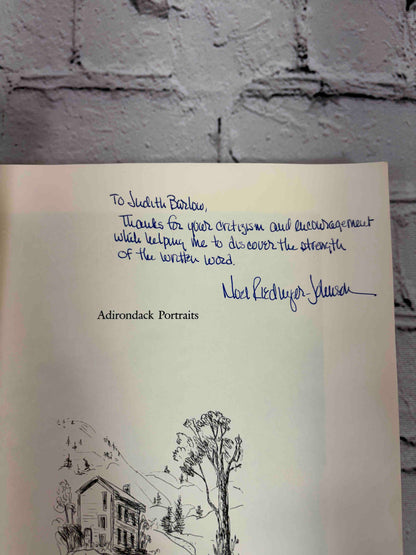 To Judith Barlow,
Thanks for your critizism and encouragement
while helping me to discover the strength
of the written word.
Noel Riedinger-Johnson
Adirondack Portraits